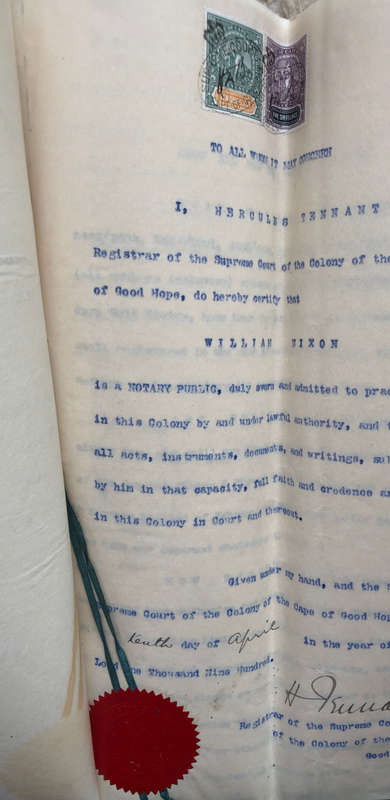 TO ALL WHOM IT MAY CONCERN
I, HERCULES TENNANT
Registrar of the Supreme Court of the Colony of the
of Good Hope, do hereby certify that
WILLIAM NIXON
is a NOTARY PUBLIC, duly sworn and admitted to prac
in this Colony by and under lawful authority, and t
all acts, instruments, documents, and writings, su
by him in that capacity, full faith and credence a
in this Colony in Court and thereout.
Given under my hand, and the
Supreme Court of the Colony of the Cape of Good Hop
tenth day of April in the year of
Lord One Thousand Nine Hundred.
H Tenna
Registrar of the Supreme Co
of the Colony of the
Good